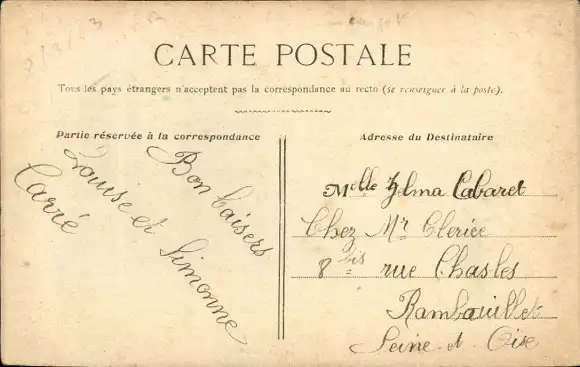 CARTE POSTALE
Tous les pays étrangers n'acceptent pas la correspondance au recto (se renseigner à la poste).
Partie réservée à la correspondance
Bon baisers
Louise et Simonne
Carré
Adresse du Destinataire
Melle Zelma Cabaret
Chez Mr Clerice
8 bis rue Chasles
Rambouillet
Seine et Oise